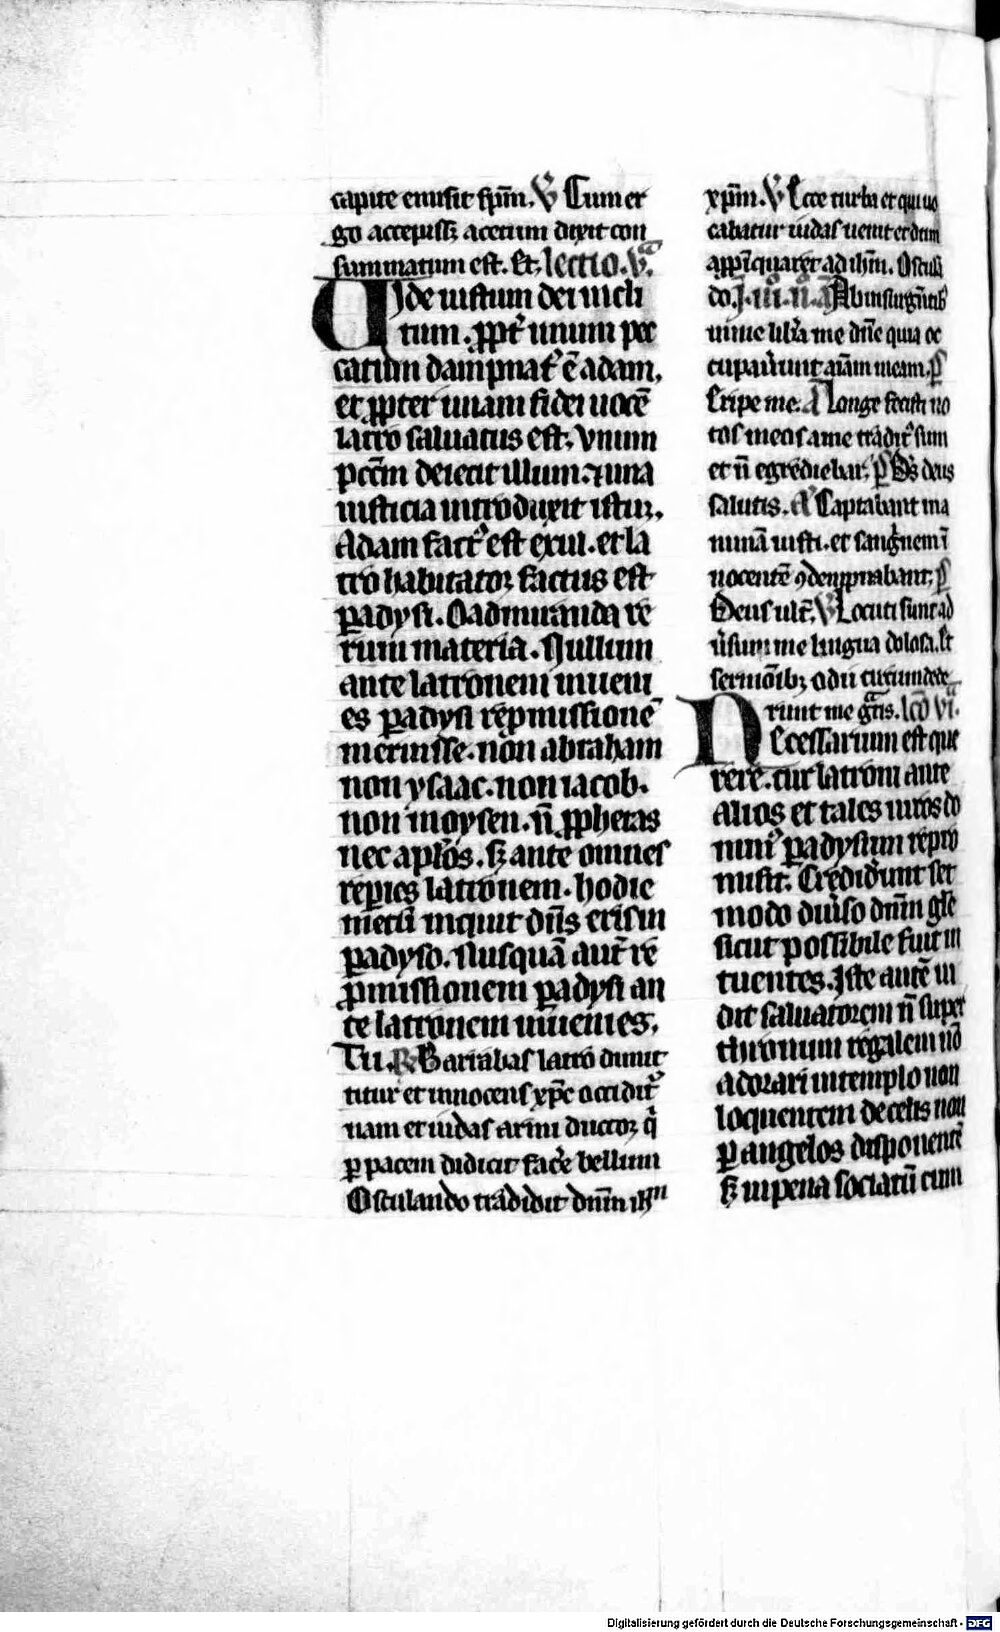 capite emisit sp̄m. V̄ Cum er
go accepiss; acetum dixit con
summatum est. Et. lectio. v͛ᵃ
Uide iustum dei iudi
tium. ꝓpt̄ unum pec
catum dampnat᷒ ē adam.
et ꝓpter unam fidei uocē
latro saluatus est. Vnum
pctm̄ deiecit illum. ⁊ una
iusticia introduxit istū.
Adam fact᷒ est exul. et la
tro habitator factus est
ꝑadysi. O admiranda re
rum materia. Nullum
ante latronem inueni
es ꝑadysi reꝓmissionē
meruisse. non abraham
non ysaac. non iacob.
non moysen. n̄ ꝓphetas
nec apl̄os. s; ante omnes
reꝑies latronem. hodie
mecū inquit dn̄s eris in
ꝑadyso. Nusquā aut̄ re
ꝓmissionem ꝑadysi an
te latronem inuenies.
Tu. R̄ Barrabas latro dimit
titur et innocens xp̄c occidit᷒
nam et iudas armi ductor q̄
ꝑ pacem didicit fac̄e bellum
Osculando tradidit dn̄m ih̄m
xp̄m. V̄ Ecce turba et qui uo
cabatur iudas uenit et dum
apꝓinquaret ad ih̄m. Oscul
do. J. iii. n̄. A Ab insurgn̄tib᷒
in me lib̄a me dn̄e quia oc
cupau̅unt aīam meam. p̄
Eripe me. A Longe fecisti no
tos meos a me tradit᷒ sum
et n̄ egrediebar. p̄ Dn̄s deus
salutis. A Captabant in a
nimā iusti. et sang̅nem ī
nocentē ꝯdempnabant. p̄
Deus ult̄. V̄ Locuti sunt ad
u̅sum me lingua dolosa. Et
sermōib; odii circumdede
runt me gr̄tis. lc̄o vi͛ᵃ.
Necessarium est que
rere. cur latroni ante
alios et tales uiros do
min᷒ ꝑadysum reꝓ
misit. Credid̅unt set
modo diu̅so dn̄m gl̄e
sicut possibile fuit in
tuentes. Iste autē ui
dit saluatorem n̄ super
thronum regalem nō
adorari in templo non
loquentem de celis non
ꝑ angelos disponentē
s; in pena sociatū cum